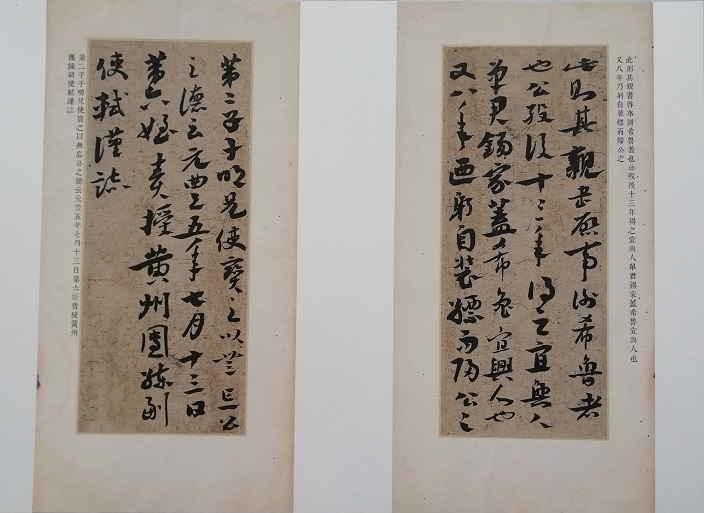 此則其親書啓事謝希魯者也公歿後十三年得之宜興人單君錫家蓋希魯宜興人也
又八年乃躬自裝標而歸公之
此則其親書啓事謝希魯者
也公歿後十三年得之宜興人
單君錫家蓋希魯宜興人也
又八年迺躬自裝標而歸公之
第二子子明兄使寶之以無忘公
之德云元豐五年七月十三日
第六姪責授黃州團練副
使軾謹誌
第二子子明兄使寶之以無忘公之德云元豐五年七月十三日第六姪責授黃州
團練副使軾謹誌